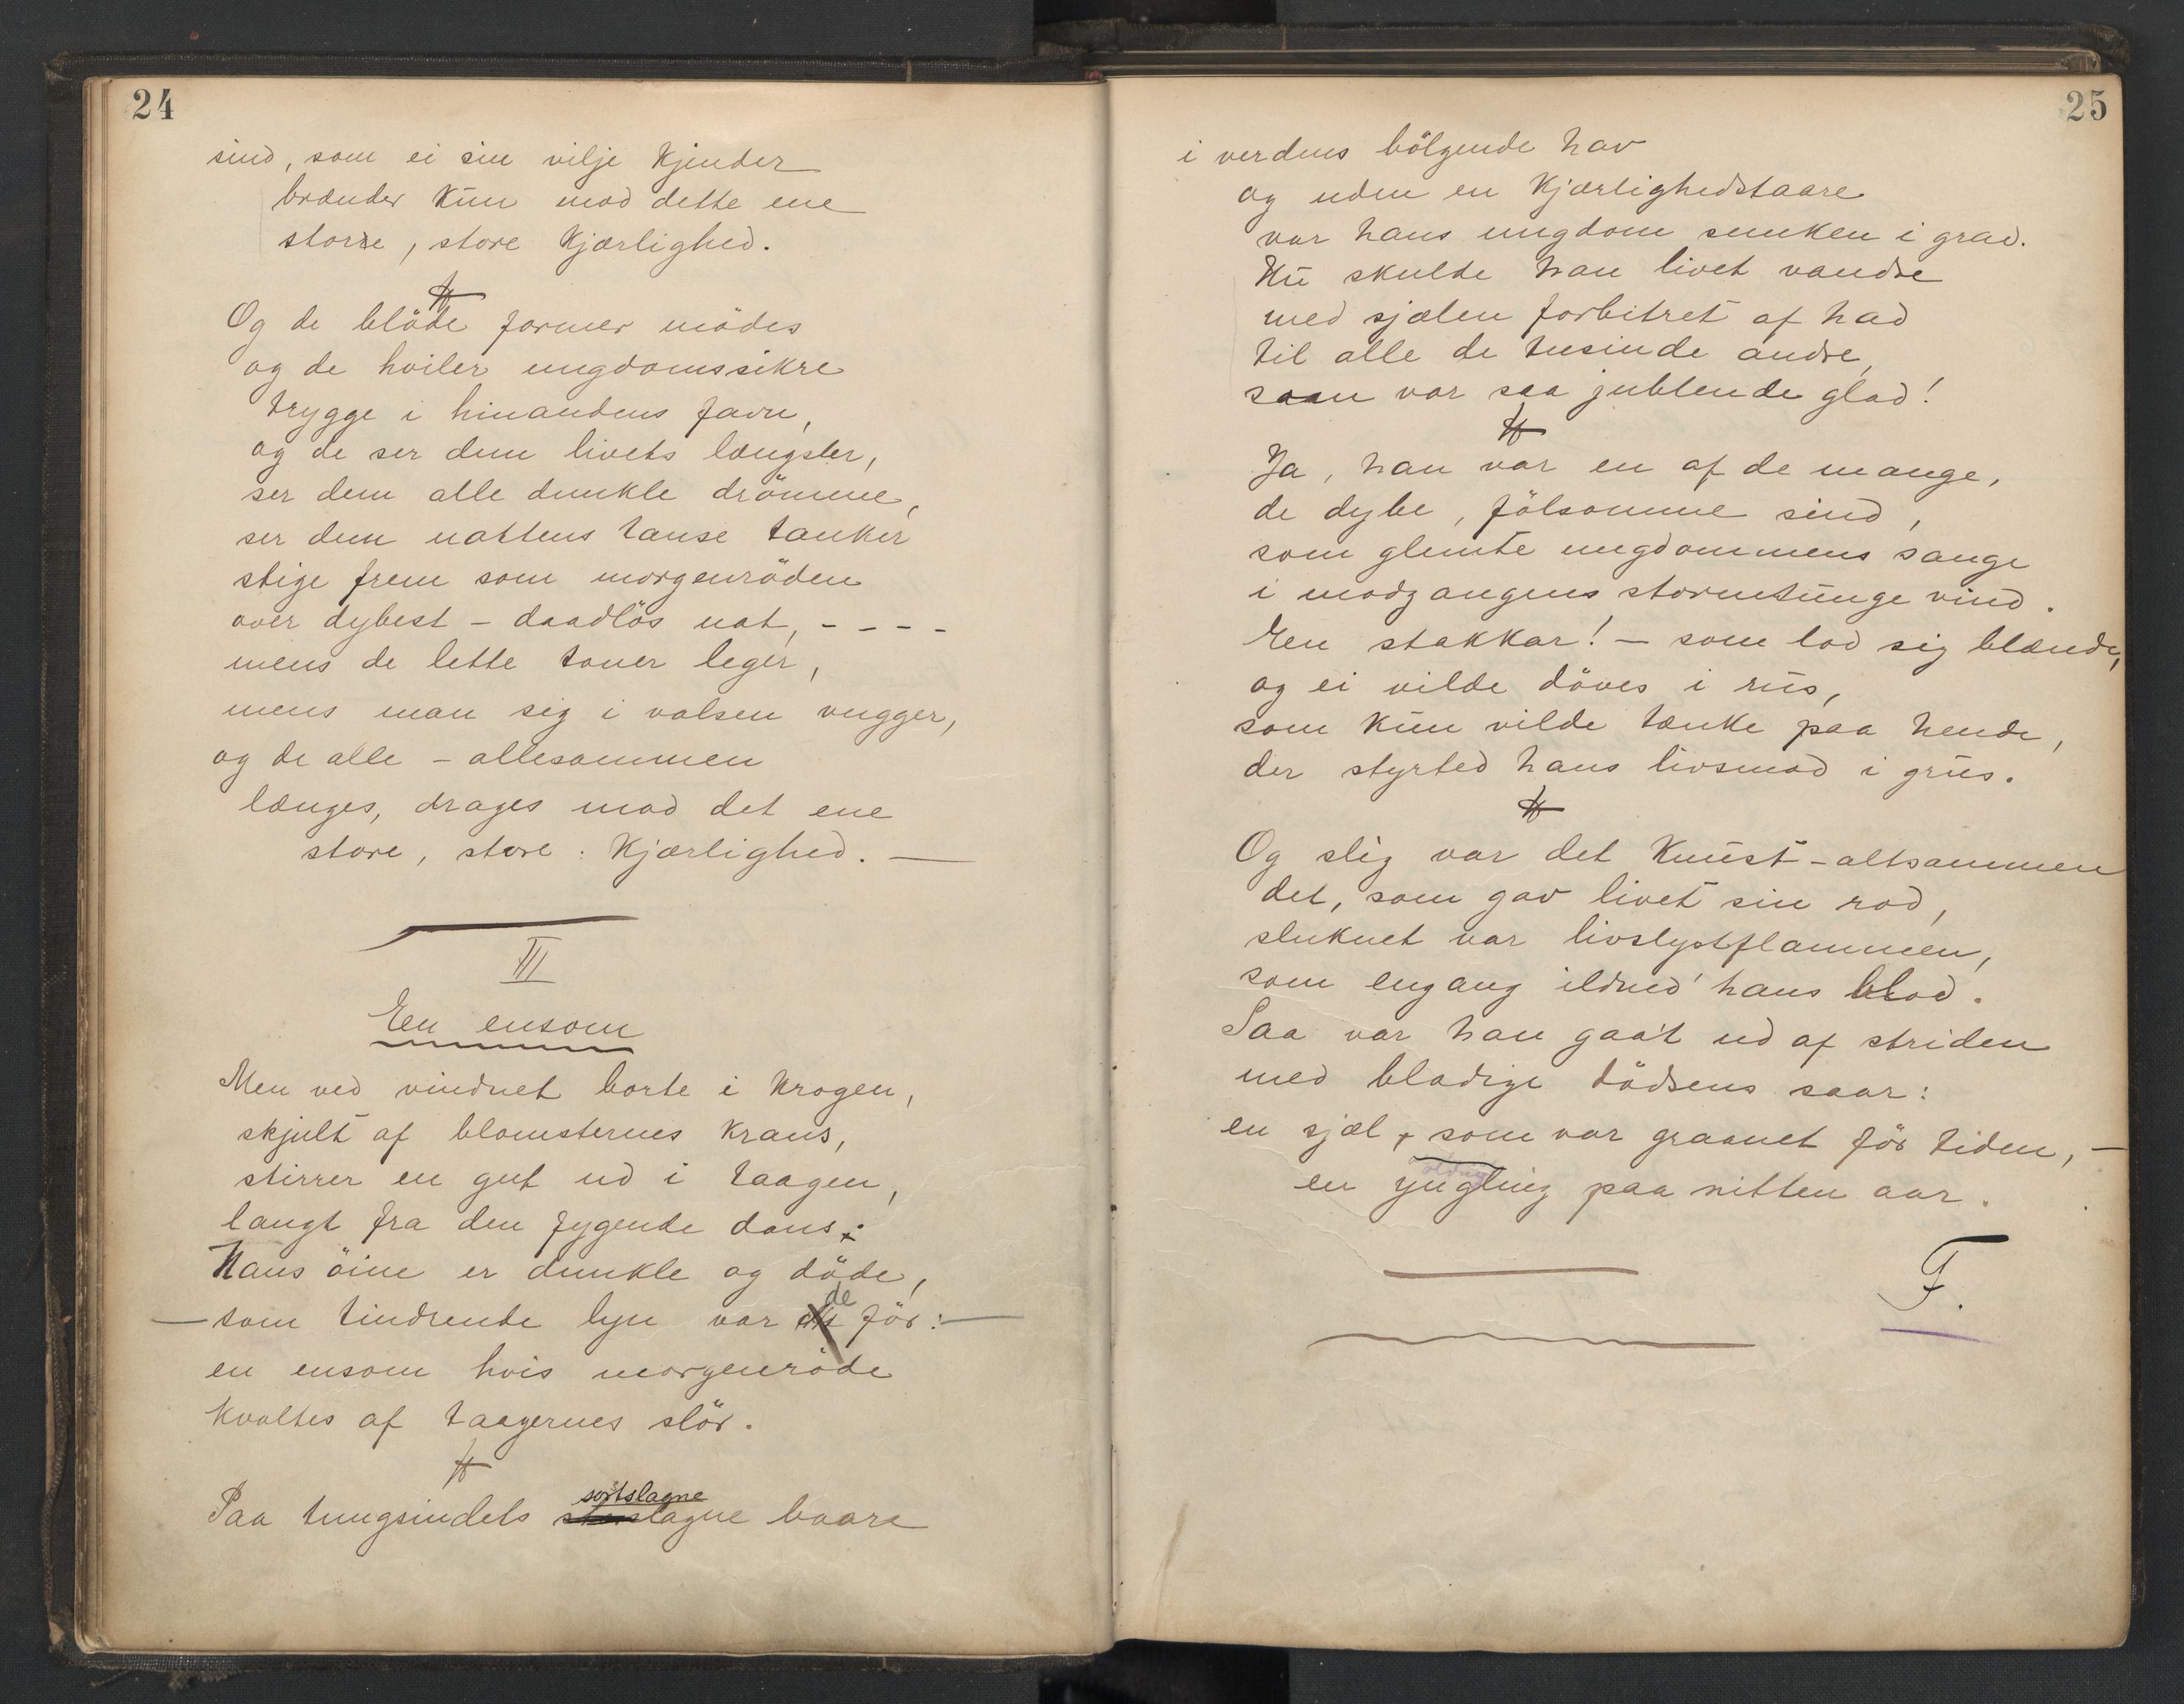 24
sind, som ei sin vilje kjender
brænder kun mod dette ene
store, store kjærlighed.
Og de bløde former mödes
og de hviler ungdomssikre
trygge i hinandens favn,
og de ser dem livets længsler,
ser dem alle dunkle drömme,
ser dem nattens tause tanker
stige frem som morgenröden
over dybest - daadlös nat, - - - -
mens de lette toner leger,
mens man sig i valsen vugger,
og de alle - allesammen
længes, drages mod det ene
store, store: Kjærlighed. —
III
En ensom
Men ved vinduet borte i krogen,
skjult af blomsternes krans,
stirrer en gut ud i taagen,
langt fra den fygende dans:
Hans öine er dunkle og döde,
— som tindrende lyn var de för: —
en ensom hvis morgenröde
kvaltes af taagernes slör.
Paa tungsindets sortslagne baare
25
i verdens bölgende hav
og uden en kjærlighedstaare
var hans ungdom sunken i grav.
Nu skulde han livet vandre
med sjælen forbitret af had
til alle de tusinde andre,
som var saa jublende glad!
Ja, han var en af de mange,
de dybe, fölsomme sind,
som glemte ungdommens sange
i modgangens stormtunge vind.
En stakkar! — som lod sig blænde,
og ei vilde döves i rus,
som kun vilde tænke paa hende,
der styrted hans livsmod i grus.
Og slig var det knust - altsammen
det, som gav livet sin rod,
sluknet var livslystflammen,
som engang ildned' hans blod.
Saa var han gaa't ud af striden
med blodige dödsens saar:
en sjæl, som var graanet för tiden, —
en yngling paa nitten aar.
F.